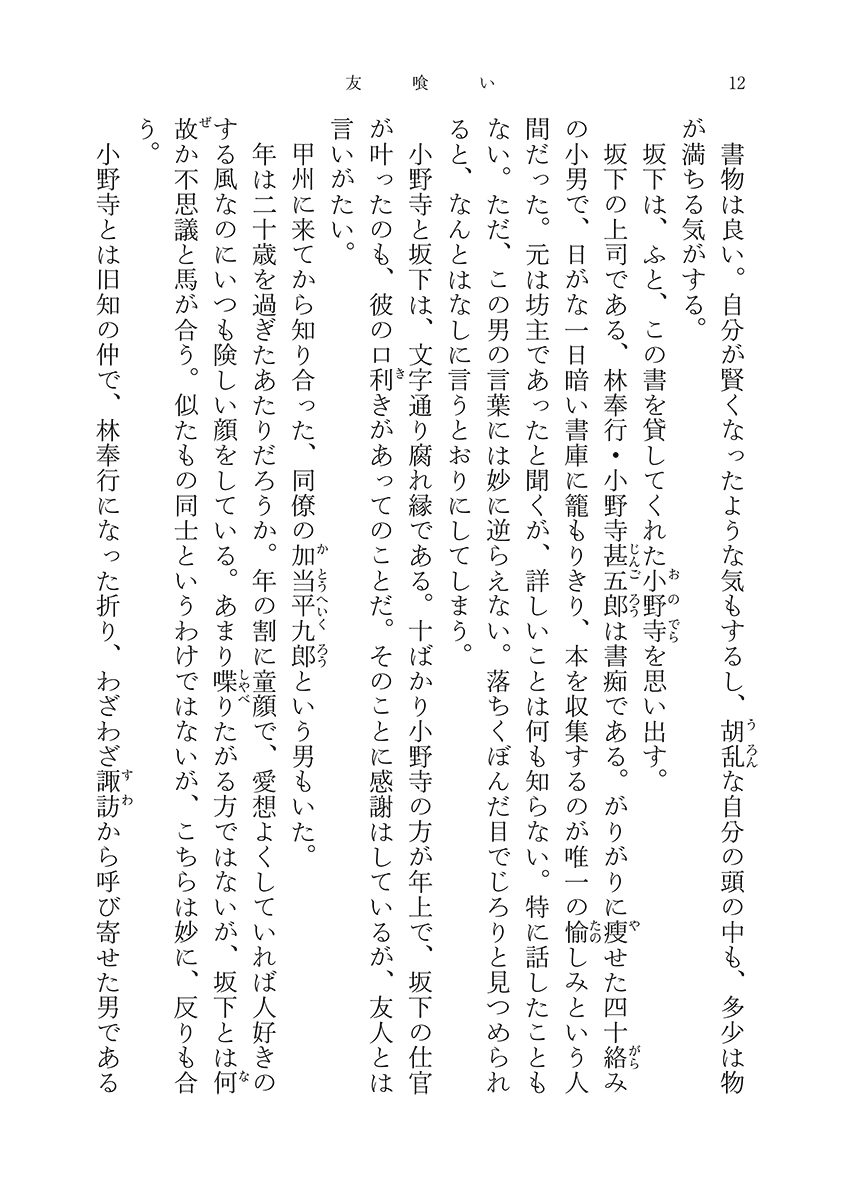 友喰い
12
書物は良い。自分が賢くなったような気もするし、胡乱な自分の頭の中も、多少は物
が満ちる気がする。
坂下は、ふと、この書を貸してくれた小野寺を思い出す。
坂下の上司である、林奉行・小野寺甚五郎は書痴である。がりがりに痩せた四十絡み
の小男で、日がな一日暗い書庫に籠もりきり、本を収集するのが唯一の愉しみという人
間だった。元は坊主であったと聞くが、詳しいことは何も知らない。特に話したことも
ない。ただ、この男の言葉には妙に逆らえない。落ちくぼんだ目でじろりと見つめられ
ると、なんとはなしに言うとおりにしてしまう。
小野寺と坂下は、文字通り腐れ縁である。十ばかり小野寺の方が年上で、坂下の仕官
が叶ったのも、彼の口利きがあってのことだ。そのことに感謝はしているが、友人とは
言いがたい。
甲州に来てから知り合った、同僚の加当平九郎という男もいた。
年は二十歳を過ぎたあたりだろうか。年の割に童顔で、愛想よくしていれば人好きの
する風なのにいつも険しい顔をしている。あまり喋りたがる方ではないが、坂下とは何
故か不思議と馬が合う。似たもの同士というわけではないが、こちらは妙に、反りも合
う。
小野寺とは旧知の仲で、林奉行になった折り、わざわざ諏訪から呼び寄せた男である